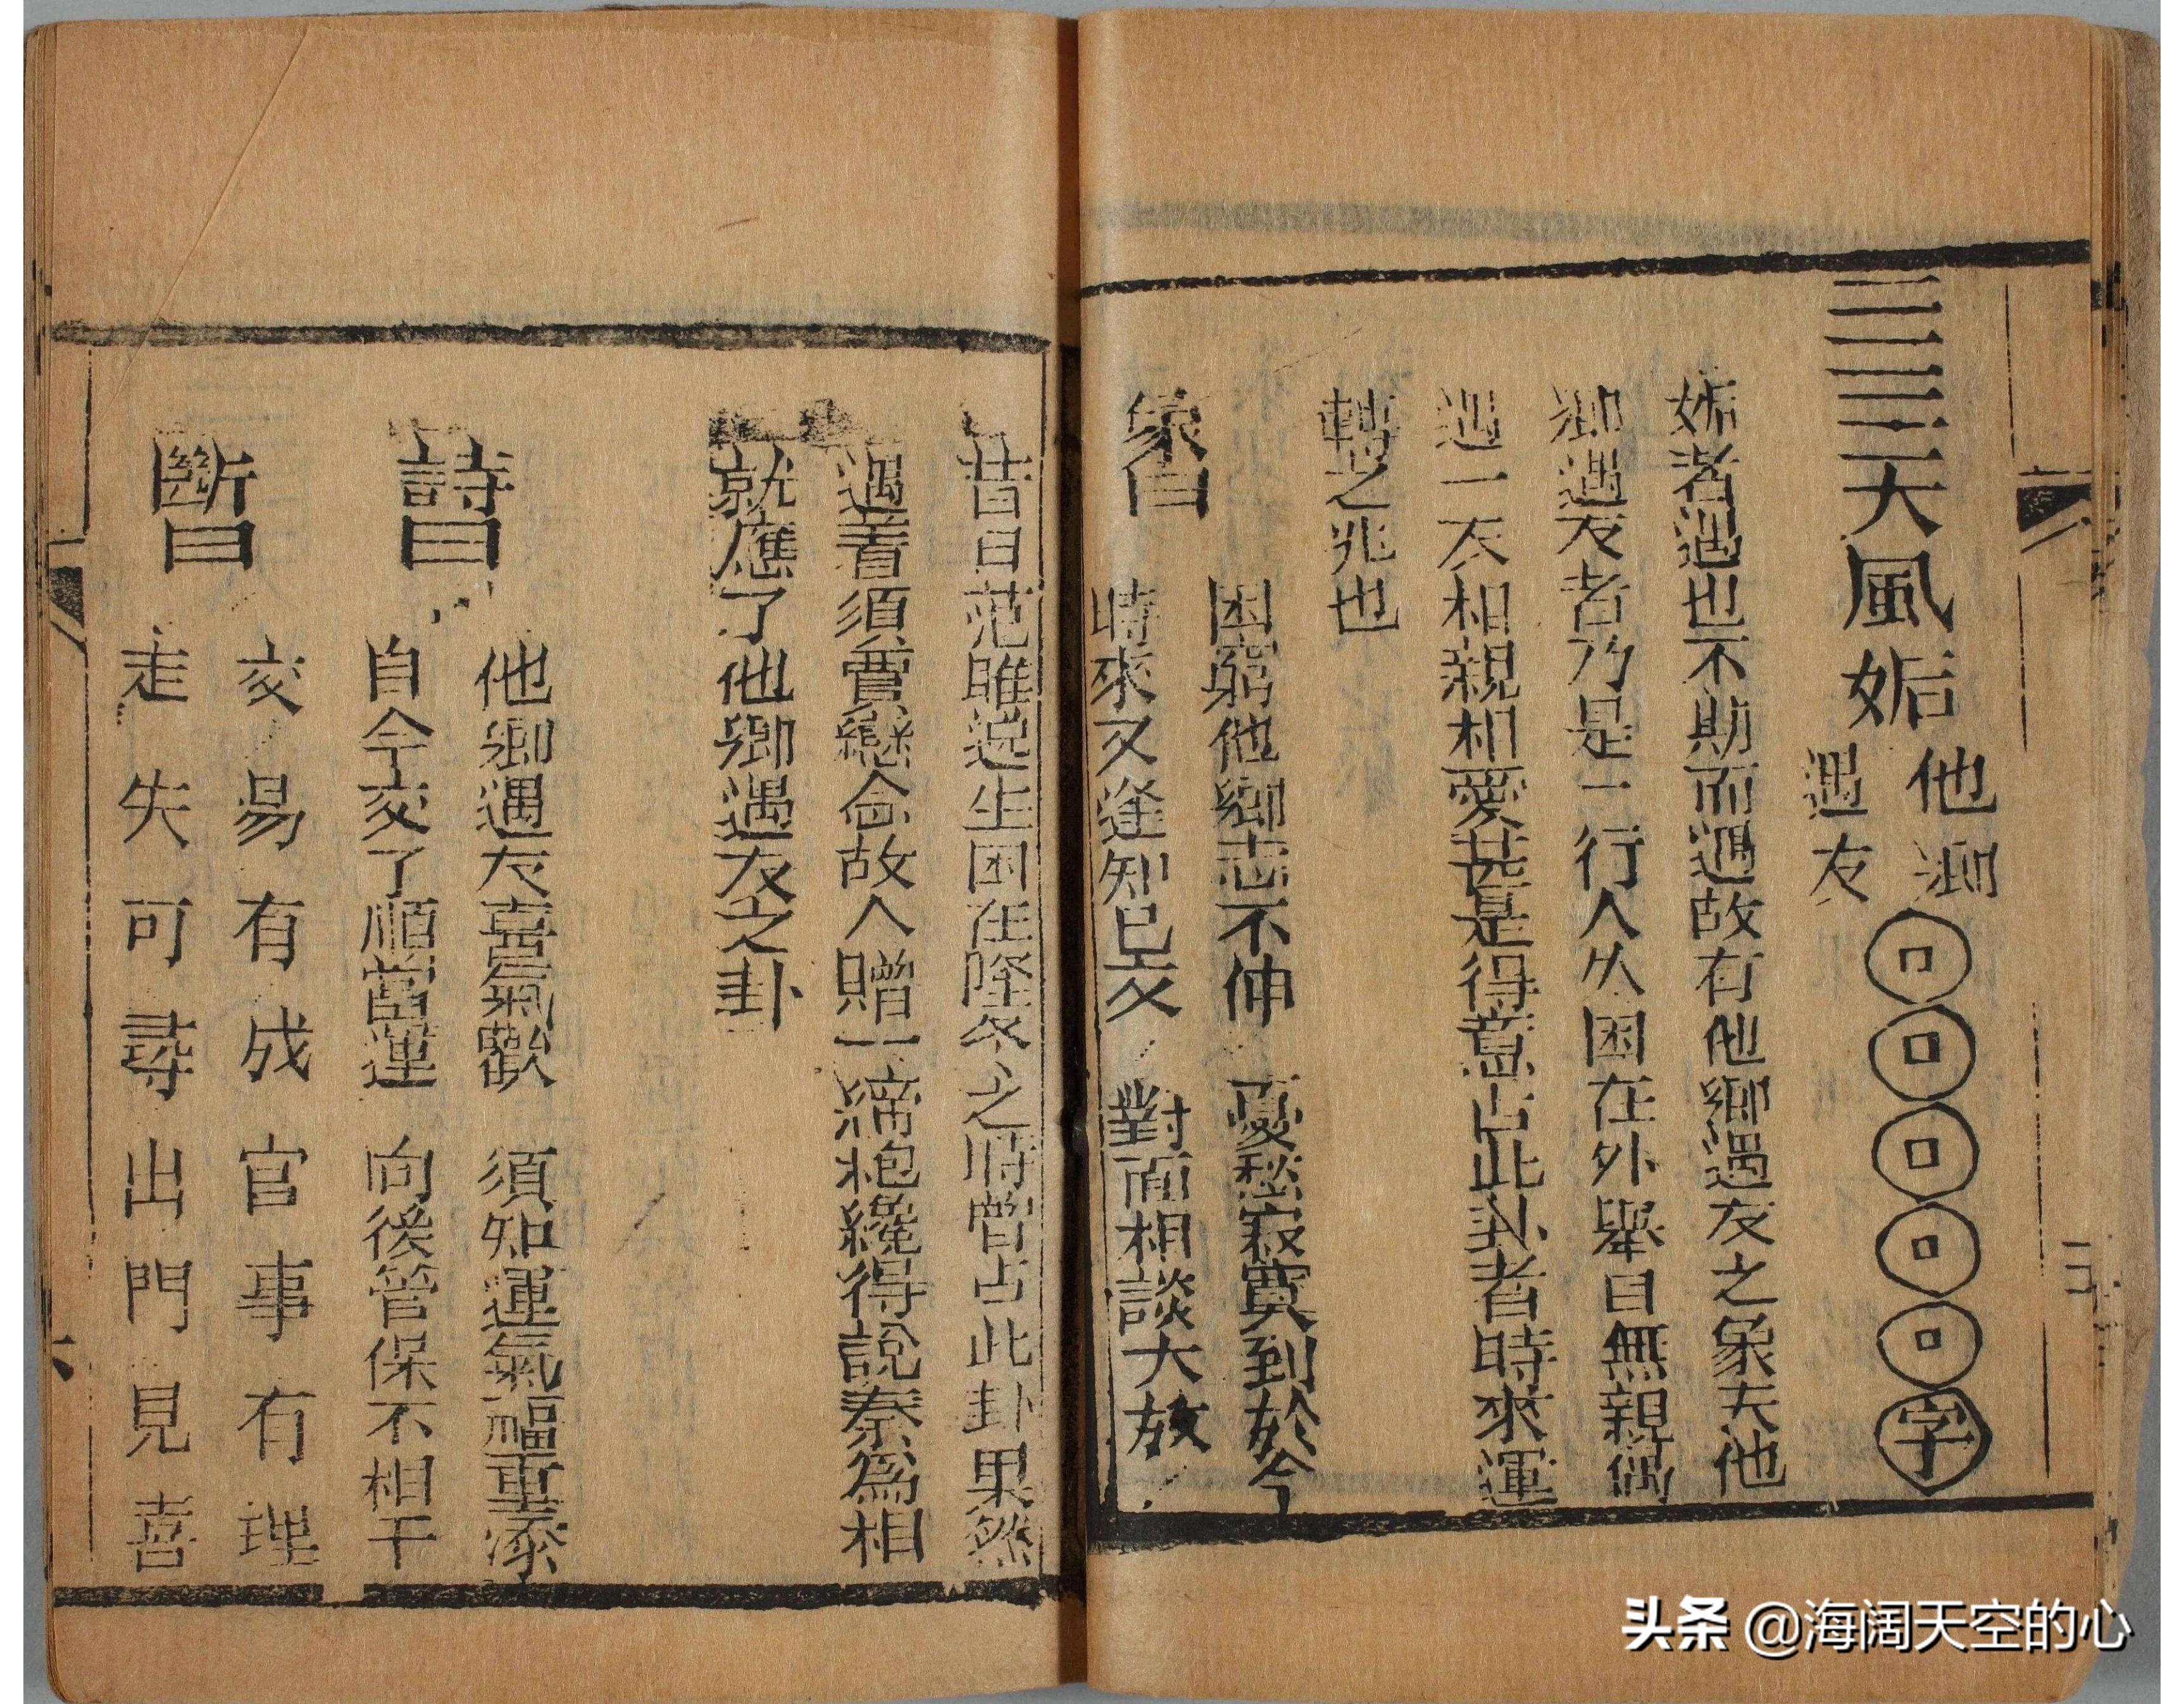 天風姤 他鄉
遇友
口
口
口
口
口
字
姤者遇也不期而遇故有他鄉遇友之象夫他
鄉遇友者乃是一行人久困在外舉目無親偶
遇一友相親相愛甚是得意占此卦者時來運
轉之兆也
象曰
困窮他鄉志不伸 憂愁寂寞到於今
時來又逢知己交 對面相談大放
昔日范雎逃生困在隆冬之時曾占此卦果然
遇着須賈戀念故人贈一綈袍纔得說秦為相
就應了他鄉遇友之卦
詩曰
他鄉遇友喜氣歡 須知運氣福重添
自今交了順當運 向後管保不相干
斷曰
交易有成官事有理
走失可尋出門見喜
头条 @海阔天空的心